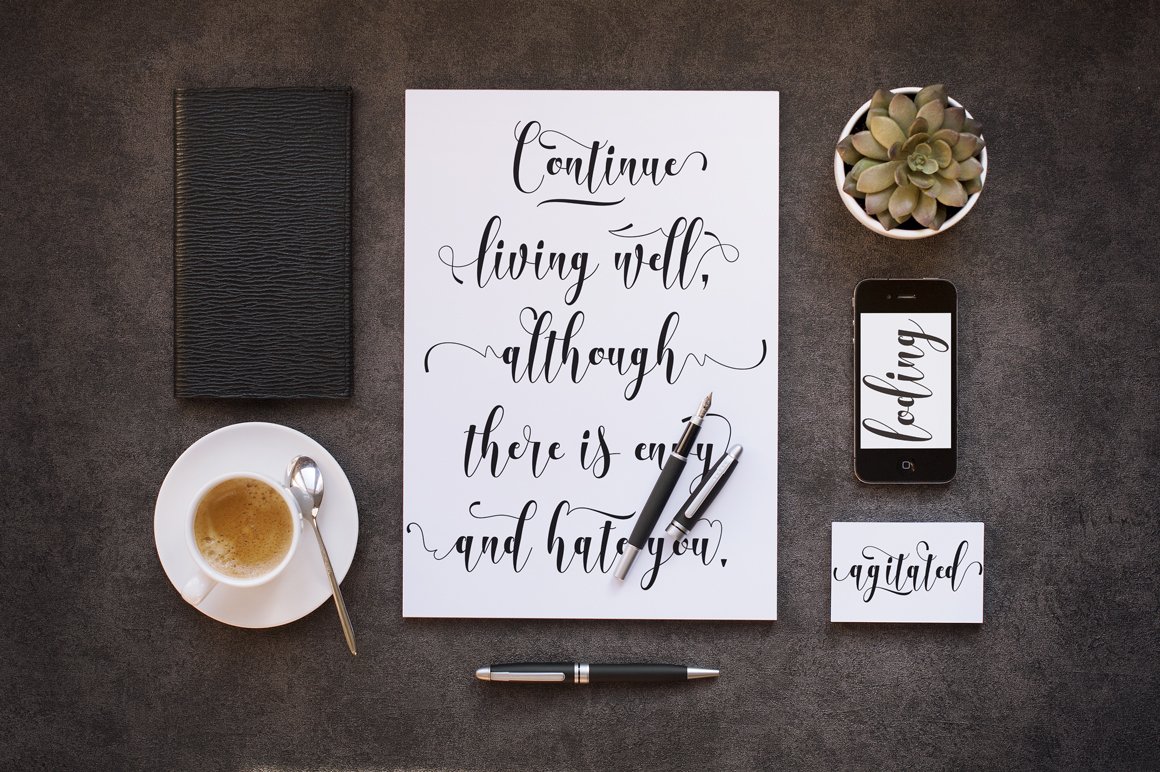 Continue
living well,
although
there is envy
and hate you.
loding
agitated